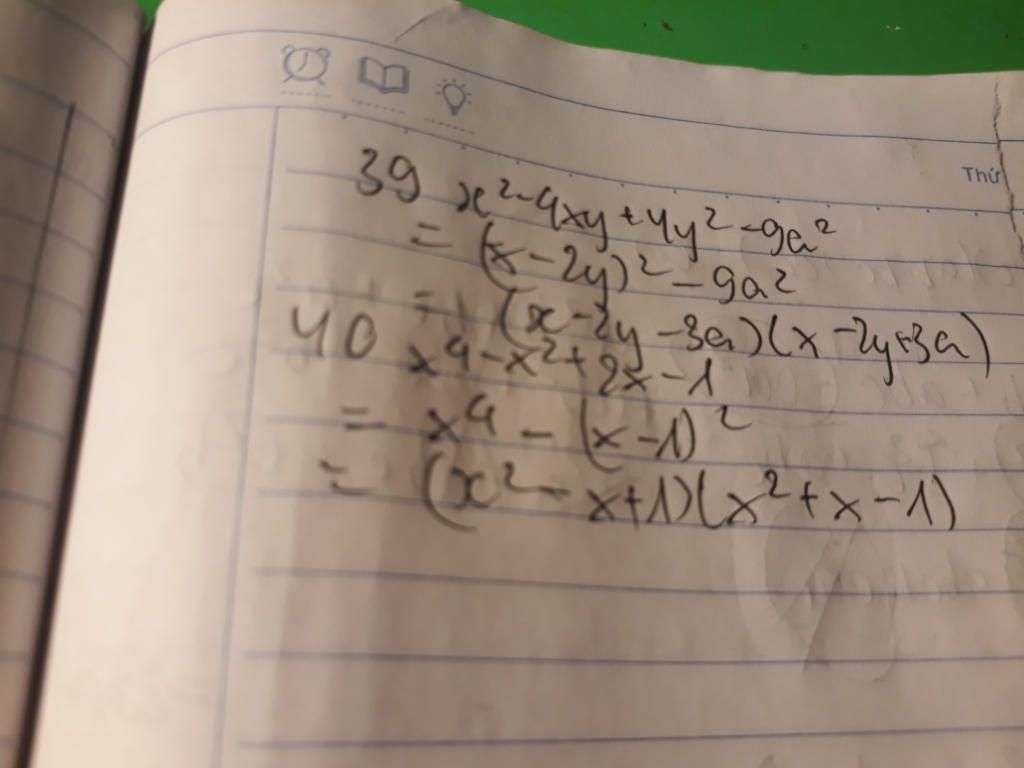 Thứ
39 x² - 4xy + 4y² - 9a²
= (x - 2y)² - 9a²
= (x - 2y - 3a)(x - 2y + 3a)
40 x⁴ - x² + 2x - 1
= x⁴ - (x - 1)²
= (x² - x + 1)(x² + x - 1)